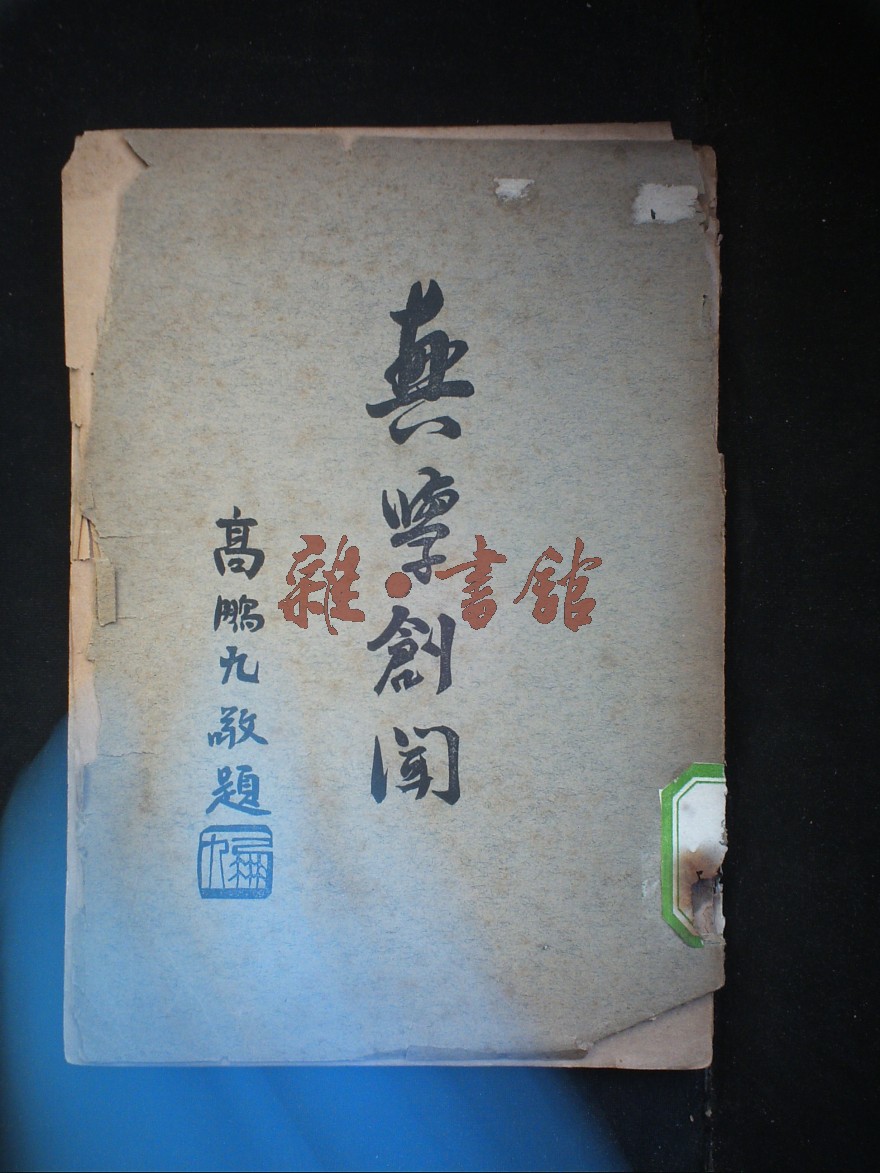 真學創聞
高鵬九敬題
雜·書館